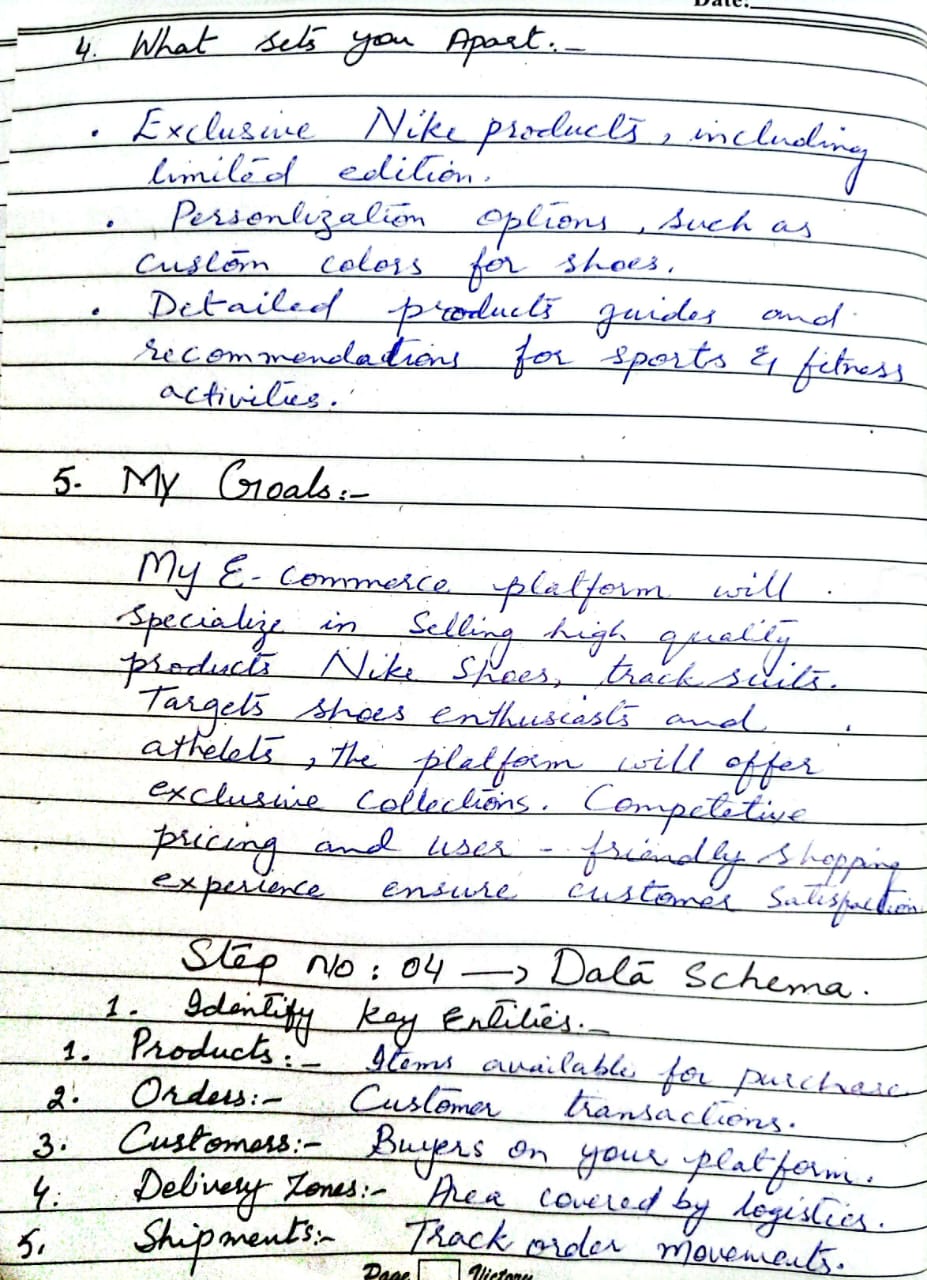 Date:
4. What sets you Apart:-
• Exclusive Nike products, including
limited edition.
• Personlization options, such as
custom colors for shoes.
• Detailed products guides and
recommendations for sports & fitness
activities.
5. My Goals:-
My E-commerce platform will
specialize in Selling high quality
products Nike Shoes, track suits.
Targets shoes enthusiasts and
athelets, the platform will offer
exclusive collections. Competetive
pricing and user-friendly shopping
experience ensure customer satisfaction
Step No: 04 → Data Schema.
1. Identify key Entities:-
1. Products:- Items available for purchase
2. Orders:- Customer transactions.
3. Customers:- Buyers on your platform.
4. Delivery Zones:- Area covered by logistics.
5. Shipments:- Track order movements.
Page Victory